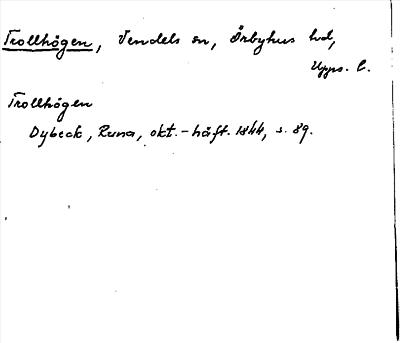 Trollhögen, Vendels sn, Örbyhus hd,
Upps. l.
Trollhögen
Dybeck, Runa, okt.-häft. 1844, s. 89.